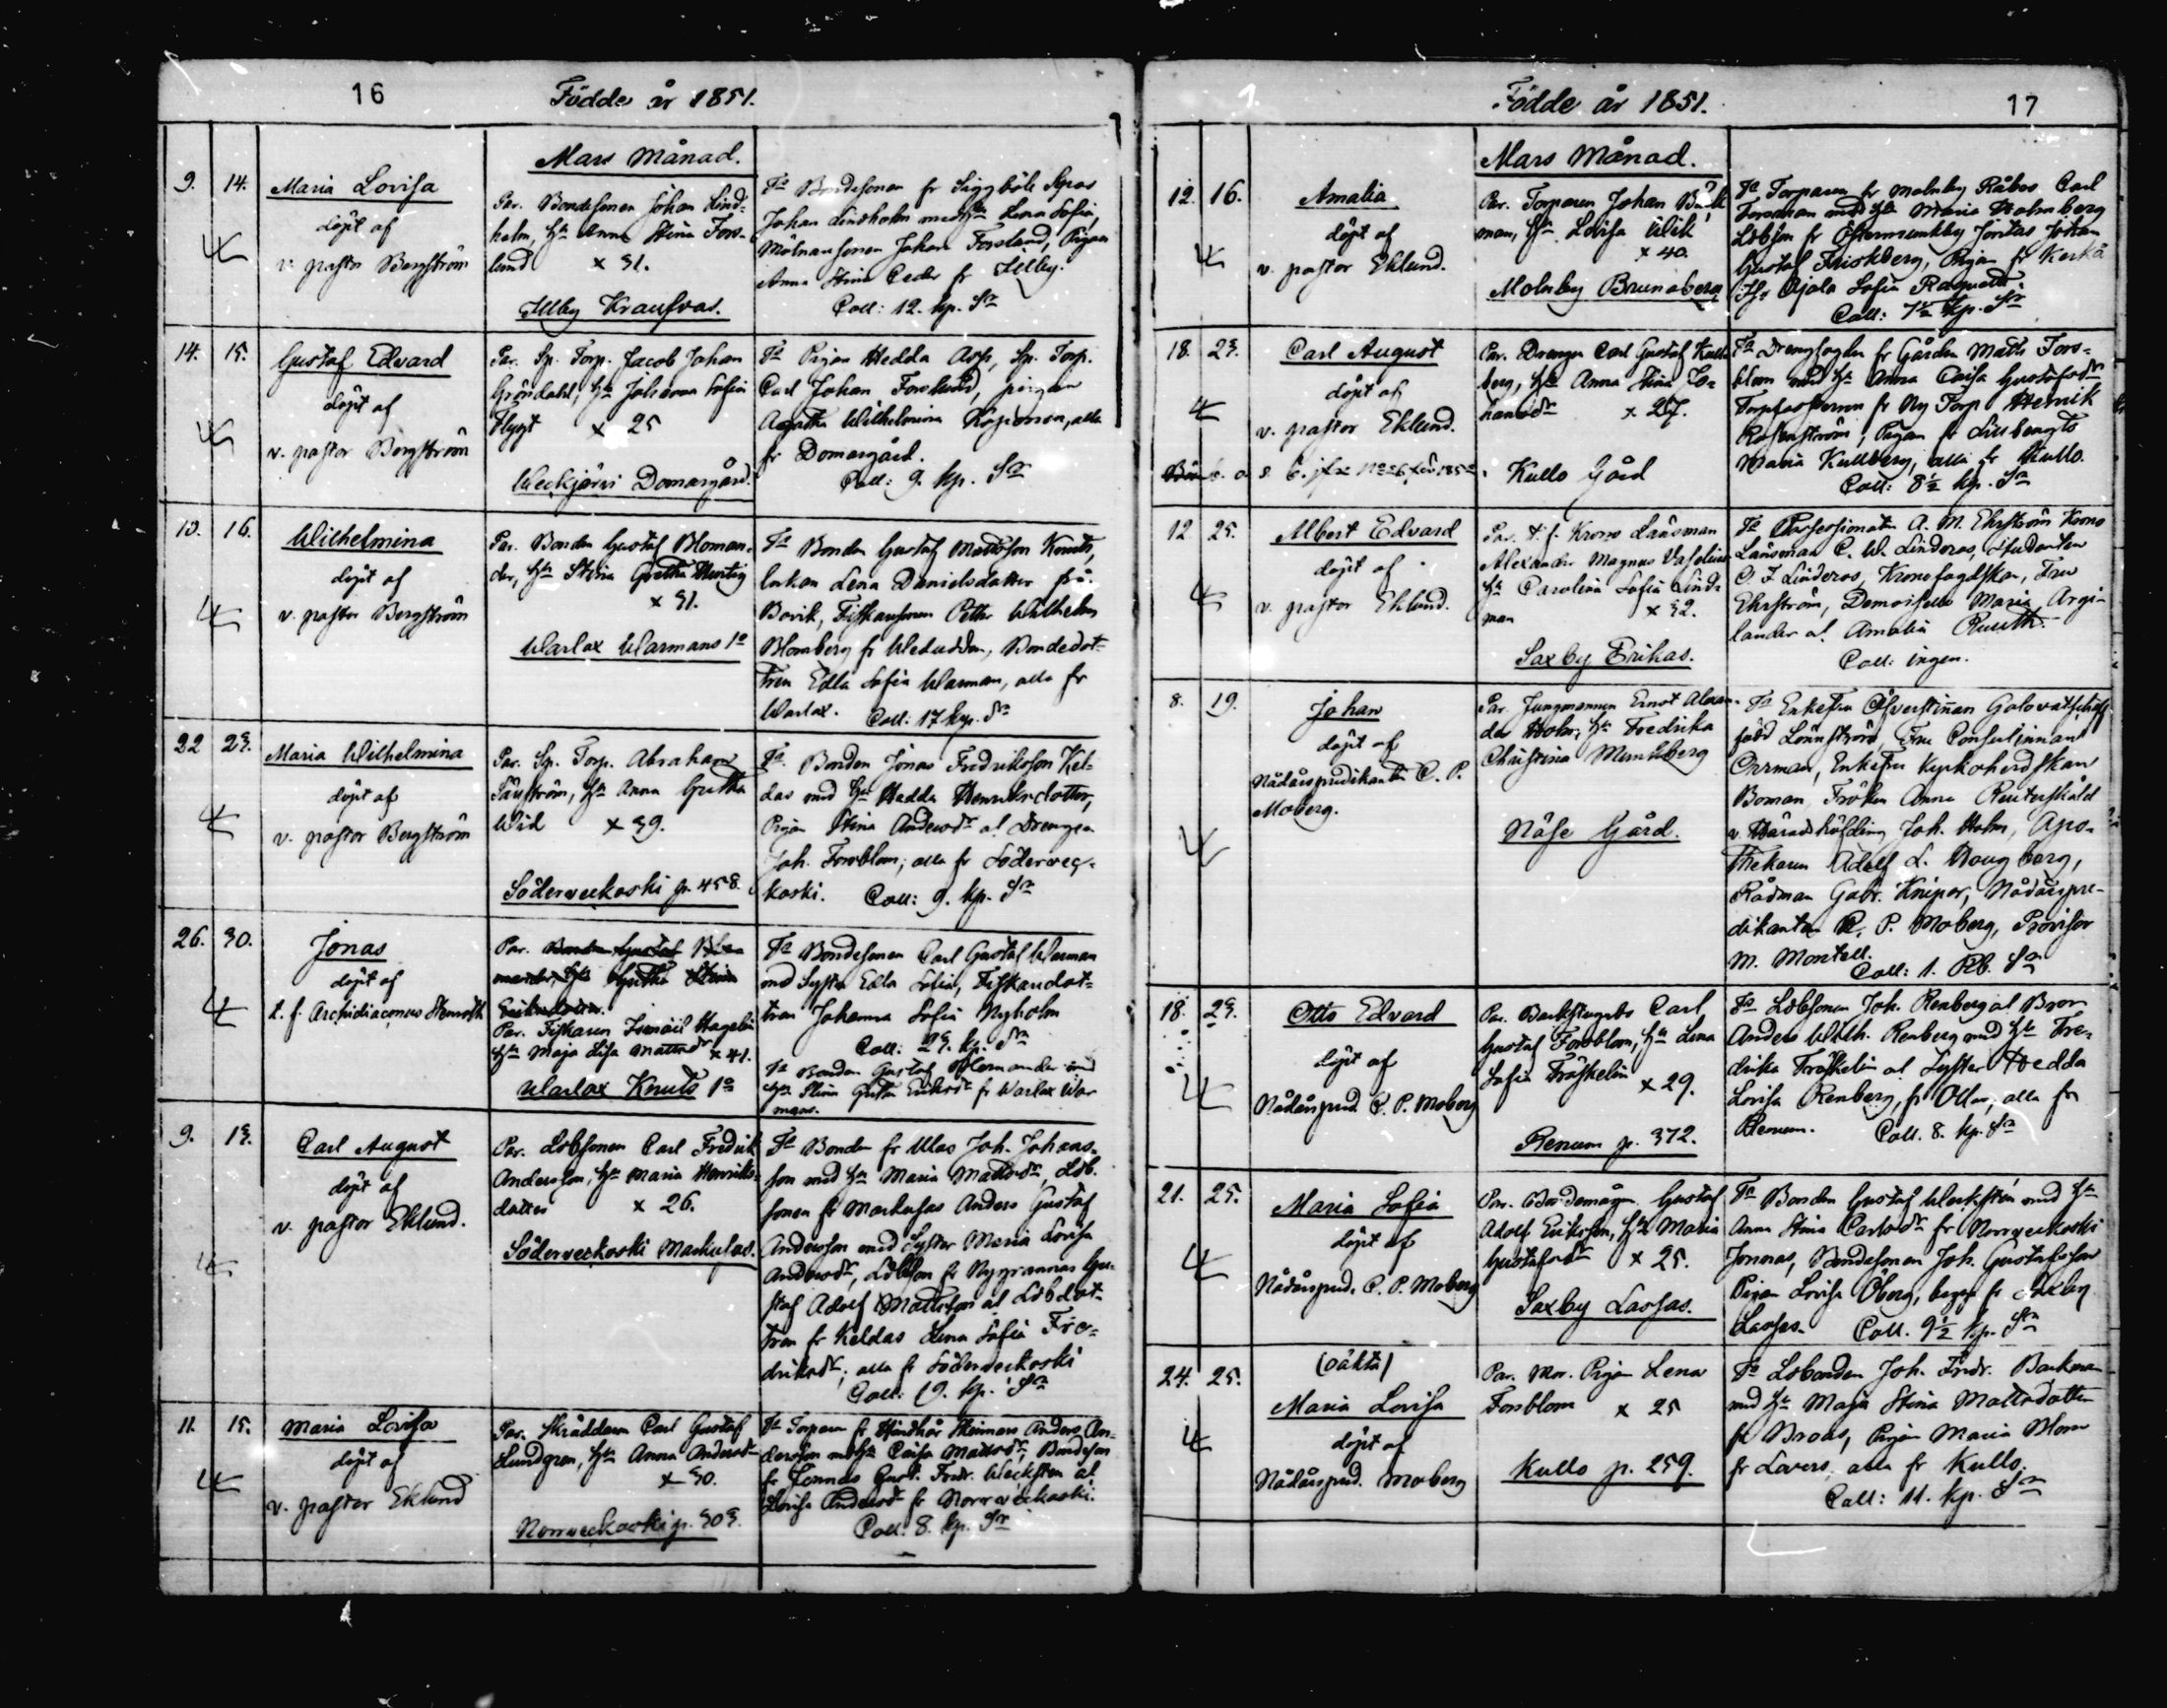 16
Födde år 1851.
Mars Månad.
9. 14. Maria Lovisa
döpt af
v. pastor Bergström
Par. Bondesonen Johan Lind-
holm, H:u Anna Stina Fors-
lund × 31.
Illby
Johan Lindholm med H:u Lena Sofia,
Johan Forslund, Pigan
Anna Stina Ceder fr Illby.
Coll: 12. kp. Sr
14. 15. Gustaf Edvard
döpt af
v. pastor Bergström
Par. Sp. Torp. Jacob Johan
Gröndahl, H:u Johanna Sofia
Flygt × 25
Weckjärvi Domargård.
Fa Pigan Hedda Asp, Sp. Torp.
Carl Johan Forslund, pigan
Agatha Wilhelmina alla
fr Domargård.
Coll: 9. kp. Sr
10. 16. Wilhelmina
döpt af
v. pastor Bergström
Par. Bonden Gustaf Bloman-
der, H:u Stina Gretha
× 31.
Warlax Warmans 1o
Fa Bonden Gustaf Mattsson Knuts,
Lena Danielsdotter frå.
Bovik, Petter Wilhelm
Blomberg fr Bondedot-
tren Edla Sofia Warman, alla fr
Warlax. Coll: 17 kp. Sr
22 23. Maria Wilhelmina
döpt af
v. pastor Bergström
Par. Sp. Torp. Abraham
H:u Anna Gretha
Wid × 39.
Söderveckoski p. 458.
Fa. Bonden Jonas Fredriksson Kel-
das med H:u Hedda Henriksdotter,
Pigan Stina Andersdr o! Drengen
Joh. Forsblom, alla fr Söderveck-
koski. Coll: 9. kp. Sr
26. 30. Jonas
döpt af
t. f. Archidiaconus Stenroth
Par. Bonden Gustaf Blo-
mander, H:u Gretha Stina
Eriksdotter.
Par. Fiskaren Hagelin
H:u Maja Lisa Mattsdr × 41.
Warlax Knuts 1o
Fa Bondesonen Carl Gustaf Warman
med Syster Edla Sofia, Fiskaredot-
tren Johanna Sofia Nyholm
Coll: 23. kp. Sr
Fa Bonden Gustaf Blomander med
H:u Stina Greta Eriksdr fr Warlax War
mans.
9. 13. Carl August
döpt af
v. pastor Eklund.
Par. Lobsonen Carl Fredrik
Andersson, H:u Maria Henriks-
dotter × 26.
Söderveckoski Markulas.
Fa Bonden fr Ulas Joh. Johans-
son med H:u Maria Mattsdr, Lob.
sonen fr Markusas Anders Gustaf
Andersson med Syster Maria Lovisa
Andersdr, Lobson fr Nygrannas Gu-
staf Adolf Mattsson o! Lobdot-
tren fr Keldas Lena Sofia Fre-
driksdr; alla fr Söderveckoski
Coll: 19. kp. Sr
11. 15. Maria Lovisa
döpt af
v. pastor Eklund
Par. Skräddaren Carl Gustaf
Lundgren, H:u Anna Andersdr
× 30.
Norrveckoski p. 303.
Fa Torparen fr Hindhår Anders An-
dersson med H:u Caisa Mattsdr, Bondeson
fr Jonnas Gust. Fredr. Weckstén o!
Lovisa Andersdr fr Norrveckoski.
Coll: 8. kp. Sr
Födde år 1851.
17
Mars Månad.
12. 16. Amalia
döpt af
v. pastor Eklund.
Par. Torparen Johan Bäck
man, H:u Lovisa Wik
× 40.
Molnby Brunaberg
Fa Torparen fr Molnby Råbas Carl
Forsman med H:u Maria Holmberg
Lobson fr Östermunkby Johan
Gustaf Friskberg, Pigan fr Kerkå
Ojala Sofia
Coll: 7½ kp. Sr
18. 23. Carl August
döpt af
v. pastor Eklund.
Par. Drengen Carl Gustaf Kull-
berg, H:u Anna Stina Jo-
hansdr × 27.
Kullo Gård
Fa Drengfogden fr Gården Matts Fors-
blom med H:u Anna Caisa Gustafsdr
fr Ny Torp Henrik
Rosenström, Pigan fr Lillbengts
Maria Kullberg, alla fr Kullo.
Coll: 8½ kp. Sr
12 25. Albert Edvard
döpt af
v. pastor Eklund.
Par. t. f. Krono Länsman
Alexander Magnus Vaselius
H:u Carolina Sofia Lind-
man × 32.
Saxby Erikas.
Fa A. M. Ehrström Krono
Länsman C. W. Linderos, Studenten
C J Linderos, Kronofogdskan, Fru
Ehrström, Demoiselle Maria Argi-
lander o! Amalia Ruuth.
Coll: ingen.
8. 19. Johan
döpt af
Nådårspredikanten C. P.
Moberg.
Par. Jungmannen Ernst Alexan-
der Holm, H:u Fredrika
Christina Munsterberg
Näse Gård.
Fa Enkefru Öfverstinnan Golovatschoff
född Lönnström Fru Consulinnan
Orrman, Enkefru Kyrkoherdskan
Boman, Fröken Anna Reuterskiöld
v. Häradshöfding Joh. Holm, Apo-
thekaren Adolf L. Hougberg,
Rådman Gabr. Kniper, Nådårspre-
dikanten C. P. Moberg, Provisor
M. Montell.
Coll: 1. Rb. Sr
18. 23. Otto Edvard
döpt af
Nådårspred. C. P. Moberg
Par. Backstugubo Carl
Gustaf Forsblom, H:u Lena
Sofia Fröskelin × 29.
Renum p. 372.
Fa Lobsonen Joh. Renberg o! Bror
Anders Wilh. Renberg med H:u Fre-
drika Fröskelin o! Syster Hedda
Lovisa Renberg, fr Ollas, alla fr
Renum. Coll. 8. kp. Sr
21. 25. Maria Sofia
döpt af
Nådårspred. C. P. Moberg
Par. Bondemågen Gustaf
Adolf Eriksson, H:u Maria
Gustafsdr × 25.
Saxby Lassas.
Fa Bonden Gustaf Weckstén med H:u
Anna Stina Carlsdr fr Norrveckoski
Jonnas, Bondesonen Joh. Gustafsson
Pigan Lovisa Öberg, begge fr Saxby
Lassas. Coll. 9½ kp. Sr
24. 25. (oäkta)
Maria Lovisa
döpt af
Nådårspred. Moberg
Par. Mor. Pigan Lena
Forsblom × 25
Kullo p. 259.
Fa Lobonden Joh. Fredr. Backman
med H:u Maja Stina Mattsdotter
fr Broas, Pigan Maria Blom
fr Lovers, alla fr Kullo.
Coll: 11. kp. Sr